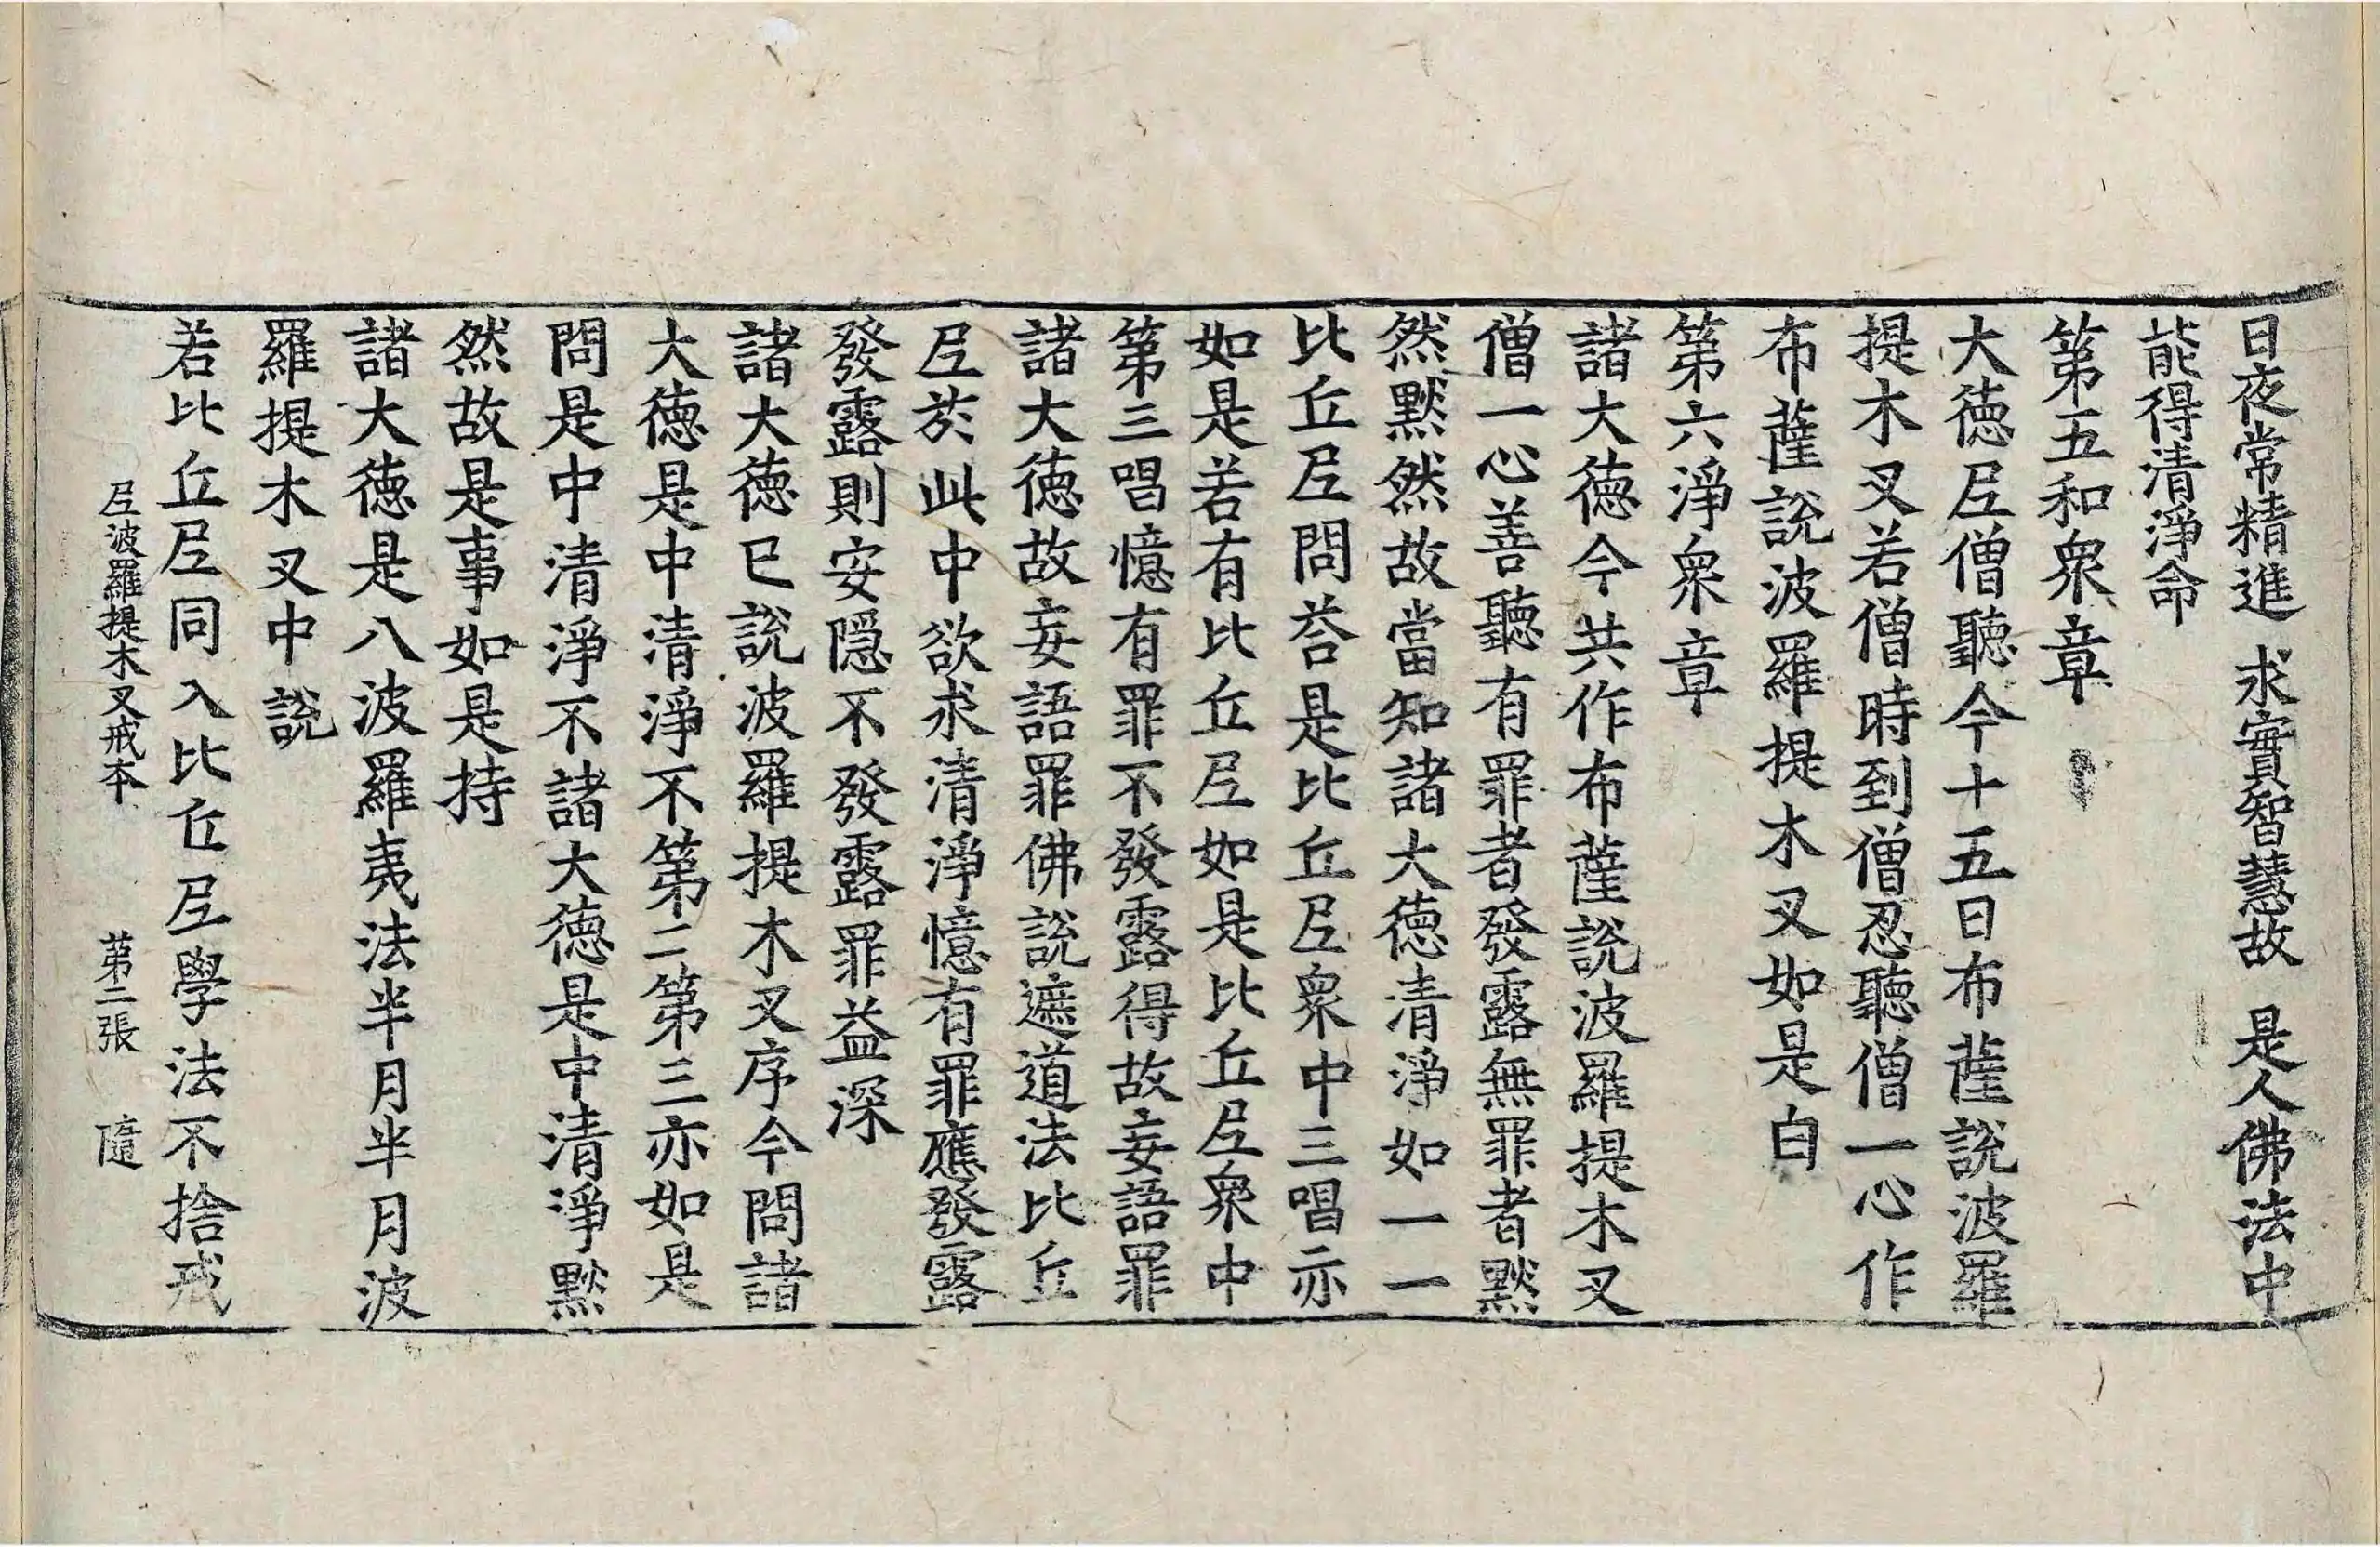 日夜常精進 求實智慧故 是人佛法中
能得清淨命
第五和衆章
大德尼僧聽今十五日布薩說波羅
提木叉若僧時到僧忍聽僧一心作
布薩說波羅提木叉如是白
第六淨衆章
諸大德今共作布薩說波羅提木叉
僧一心善聽有罪者發露無罪者默
然默然故當知諸大德清淨如一一
比丘尼問荅是比丘尼衆中三唱亦
如是若有比丘尼如是比丘尼衆中
第三唱憶有罪不發露得故妄語罪
諸大德故妄語罪佛說遮道法比丘
尼於此中欲求清淨憶有罪應發露
發露則安隱不發露罪益深
諸大德已說波羅提木叉序今問諸
大德是中清淨不第二第三亦如是
問是中清淨不諸大德是中清淨默
然故是事如是持
諸大德是八波羅夷法半月半月波
羅提木叉中說
若比丘尼同入比丘尼學法不捨戒
尼波羅提木叉戒本 第二張 隨